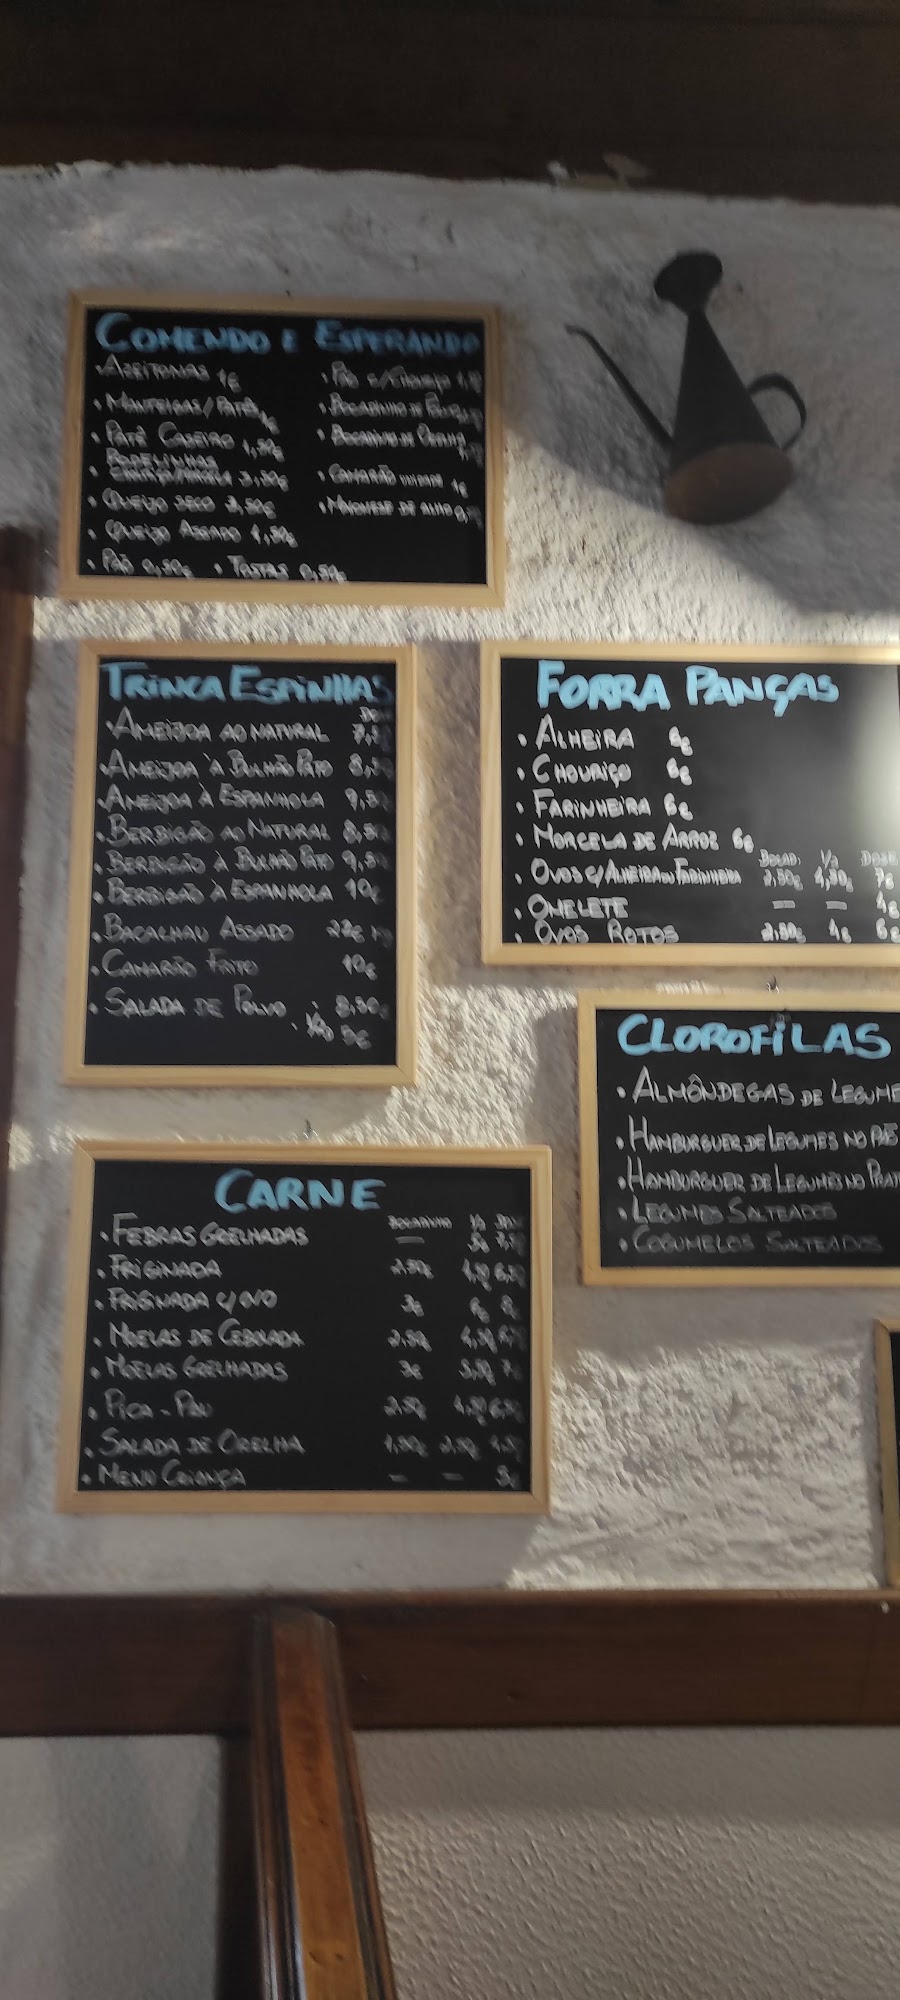 COMENDO E ESPERANDO
• AZEITONAS 1€
• MANTEIGAS/PATÊ 1€
• PATÊ CASEIRO 1,50€
• QUEIJO SECO 2,50€
• QUEIJO ASSADO 4,50€
• PÃO 0,50€ • TOSTAS 0,50€
• PÃO C/CHOURIÇO
• BOCADINHO DE
• BOCADINHO DE
• CAMARÃO UNIDADE 1€
• MAIONESE DE ALHO
TRINCA ESPINHAS
• AMEIJOA AO NATURAL
• AMEIJOA À BULHÃO PATO 8,50
• AMEIJOA À ESPANHOLA 9,50
• BERBIGÃO AO NATURAL 8,50
• BERBIGÃO À BULHÃO PATO 9,50
• BERBIGÃO À ESPANHOLA 10€
• BACALHAU ASSADO
• CAMARÃO FRITO 10€
• SALADA DE POLVO • 8,50€
• 1/2 5€
FORRA PANÇAS
• ALHEIRA 6€
• CHOURIÇO 6€
• FARINHEIRA 6€
• MORCELA DE ARROZ 6€
BOCAD. 1/2 DOSE
• OVOS C/ALHEIRA OU FARINHEIRA 2,50€ 4,50€ 7€
• OMELETE — — 4€
• OVOS ROTOS 2,50€ 4€ 6€
CLOROFILAS
• ALMÔNDEGAS DE LEGUME
• HAMBURGUER DE LEGUMES NO PÃO
• HAMBURGUER DE LEGUMES NO PRAT
• LEGUMES SALTEADOS
• COGUMELOS SALTEADOS
CARNE
BOCADINHO 1/2 DOSE
• FEBRAS GRELHADAS — 5€ 7,50
• FRIGINADA 2,50€ 4,50 6,50
• FRIGINADA C/OVO 3€ 6€ 8€
• MOELAS DE CEBOLADA 2,50€ 4,50
• MOELAS GRELHADAS 3€ 5,50 7€
• PICA-PAU 2,50€ 4,50 6,50
• SALADA DE ORELHA 1,50€ 2,50€ 4,50
• MENU CRIANÇA — —